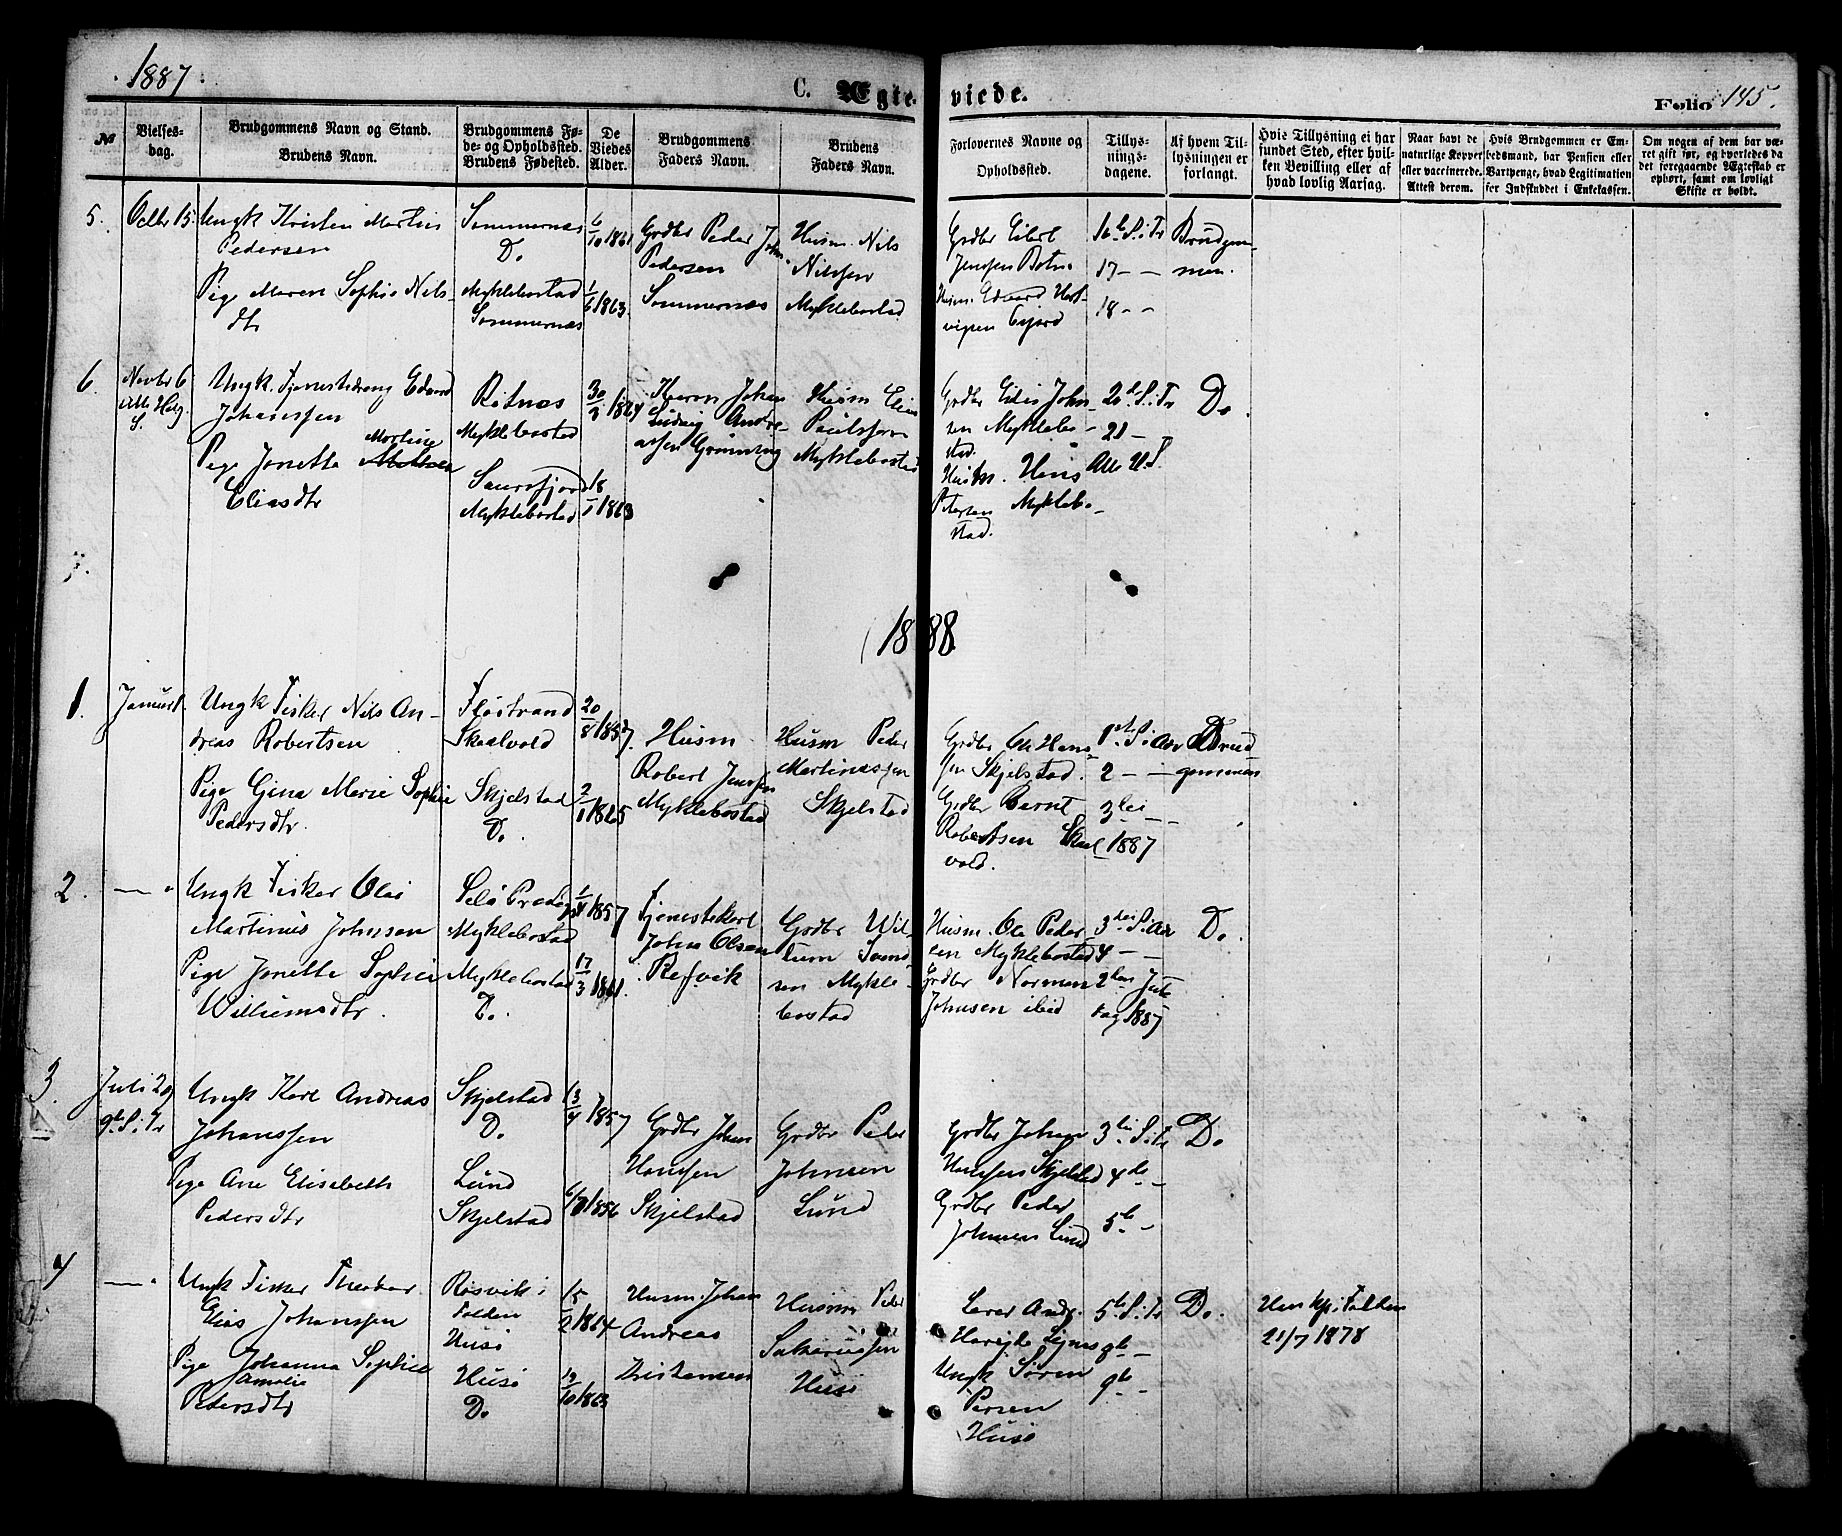 1887
C. Ægteviede.
Folio 145.
№
Vielses-
dag.
Brudgommens Navn og Stand.
Brudens Navn.
Brudgommens Fø-
de- og Opholdssted.
Brudens Fødested.
De
Viedes
Alder.
Brudgommens
Faders Navn.
Brudens
Faders Navn.
Forlovernes Navne og
Opholdssted.
Tillys-
nings-
dagene.
Af hvem Til-
lysningen er
forlangt.
Hvis Tillysning ei har
fundet Sted, efter hvil-
ken Bevilling eller af
hvad lovlig Aarsag.
Naar havt de
naturlige Kopper
eller vaccinerede.
Attest derom.
Hvis Brudgommen er Em-
bedsmand, har Pension eller
Vartpenge, hvad Legitimation
for Indskuddet i Enkekassen.
Om nogen af dem har væ-
ret gift før, og hvorledes da
det foregaaende Ægteskab er
ophørt, samt om lovligt
Skifte er holdt.
5.
Octbr 15.
Ungk Kristen Martin
Pedersen
Pige Maren Sophie Nils-
dtr
Sommernæs
Do
Myklebostad
Sommernæs
6/10 1861
1/6 1863.
Grdbr Peder John
Pedersen
Sommernæs
Husm. Nils
Nilssen
Myklebostad
Grdbr Eilert
Jenssen Botn
Husm. Edvard Hart-
vigsen
16de S. i Tr
17 – –
18 – –
Brudgom-
men.
6
Novbr 6
Alle Helg.
S.
Ungk. Tjenestedreng Edvard
Johanssen
Pige Jonette Martine
Eliasdtr
Røtnæs
Myklebostad
Saursfjord
Myklebostad
18/1 1863
Johan
Ludvig Andre-
assen Grønning
Husm Elias
Paulssen
Myklebostad
Grdbr Edis John-
sen Myklebo-
stad.
Husm. Hans
Petersen Myklebo-
stad.
20de S. i Tr
21 –
Alle H. S.
Do.
7.
1888
1.
Januar 1.
Ungk Fisker Nils An-
dreas Robertsen
Pige Gjina Marie Sophie
Pedersdtr.
Flostrand
Skaalvold
Skjelstad
Do.
20/8 1857.
2/1 1865
Husm
Robert Jenssen
Myklebostad
Husm Peder
Martinussen
Skjelstad
Grdbr Ole Hans-
sen Skjelstad.
Grdbr Bernt
Robertsen Skaal-
vold.
1ste S. i Adv
2 – –
3die – –
1887
Brud
gommen
2.
– "
Ungk Fisker Olai
Martinus Johnsen
Pige Jonette Sophie
Williumsdtr.
Myklebostad
Myklebostad
Do.
1/4 1857
17/3 1861.
Tjenestekarl
John Olsen
Refsvik
Grdbr Wil-
lium
sen Mykle-
bostad
Husm. Ole Peder-
sen Myklebostad
Grdbr Norman
Johnsen ibid
3die S. i Adv
4 – –
2den Jule
dag 1887
Do.
3.
Juli 29
9de S. i Tr
Ungk Karl Andreas
Johanssen
Pige Ane Elisabeth
Pedersdtr
Skjelstad
Do.
Lund
Skjelstad
13/4 1857
1856
Grdbr Johan
Hanssen
Skjelstad
Grdbr Peder
Johnsen
Lund
Grdbr Johan
Hanssen Skjelstad
Grdbr Peder
Johnsen Lund
3die S. i Tr
4de –
5te –
Do.
4
– "
Ungk Fisker Theodor
Elias Johanssen
Pige Johanna Sophie
Amalie
Pedersdtr
Røsvik i
Folden
Husø
Husø
Do.
15/2 1864
19/10 1863
Husm. Johan
Andreas
Kristensen
Husm Peder
Sakariassen
Husø
Lærer Andr.
Ungk Søren
Persen
Husø
5te S. i Tr
8de –
9de –
Do.
21/7 1878